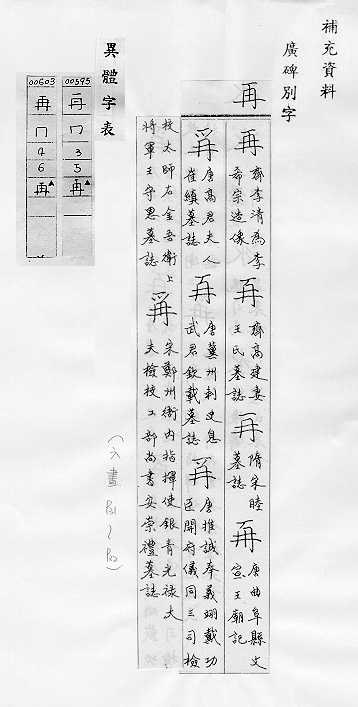 補充資料
廣碑別字
再
再 齊李清為李希宗造像 再 齊高建妻王氏墓誌 再 隋宋睦墓誌 再 唐曲阜縣文宣王廟記
再 唐高君夫人崔縝墓誌 再 唐冀州刺史息武君欽載墓誌 再 唐推誠奉義翊戴功臣開府儀同三司檢
校太師右金吾衛上將軍王守恩墓誌 再 宋鄭州衙內指揮使銀青光祿大夫檢校工部尚書安崇禮墓誌
異體字表
00595
再
冂
3
5
再
00603
冉
冂
4
6
再